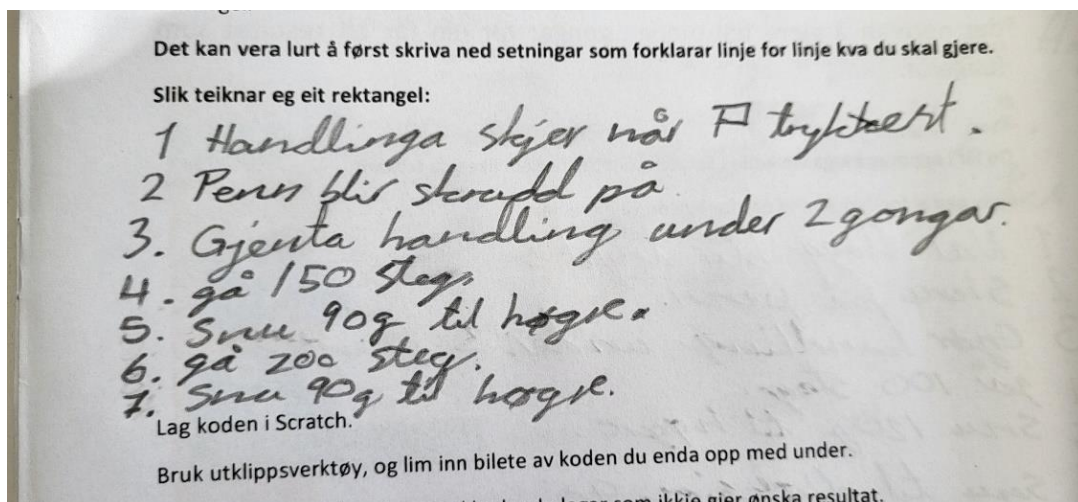 Det kan vera lurt å først skriva ned setningar som forklarar linje for linje kva du skal gjere.
Slik teiknar eg eit rektangel:
1 Handlinga skjer når trykt.
2 Penn blir skrudd på
3. Gjenta handling under 2 gongar.
4. gå 150 steg.
5. Snu 90g til høgre.
6. gå 200 steg.
7. Snu 90g til høgre.
Lag koden i Scratch.
Bruk utklippsverktøy, og lim inn bilete av koden du enda opp med under.
som ikkje gjer ønska resultat.